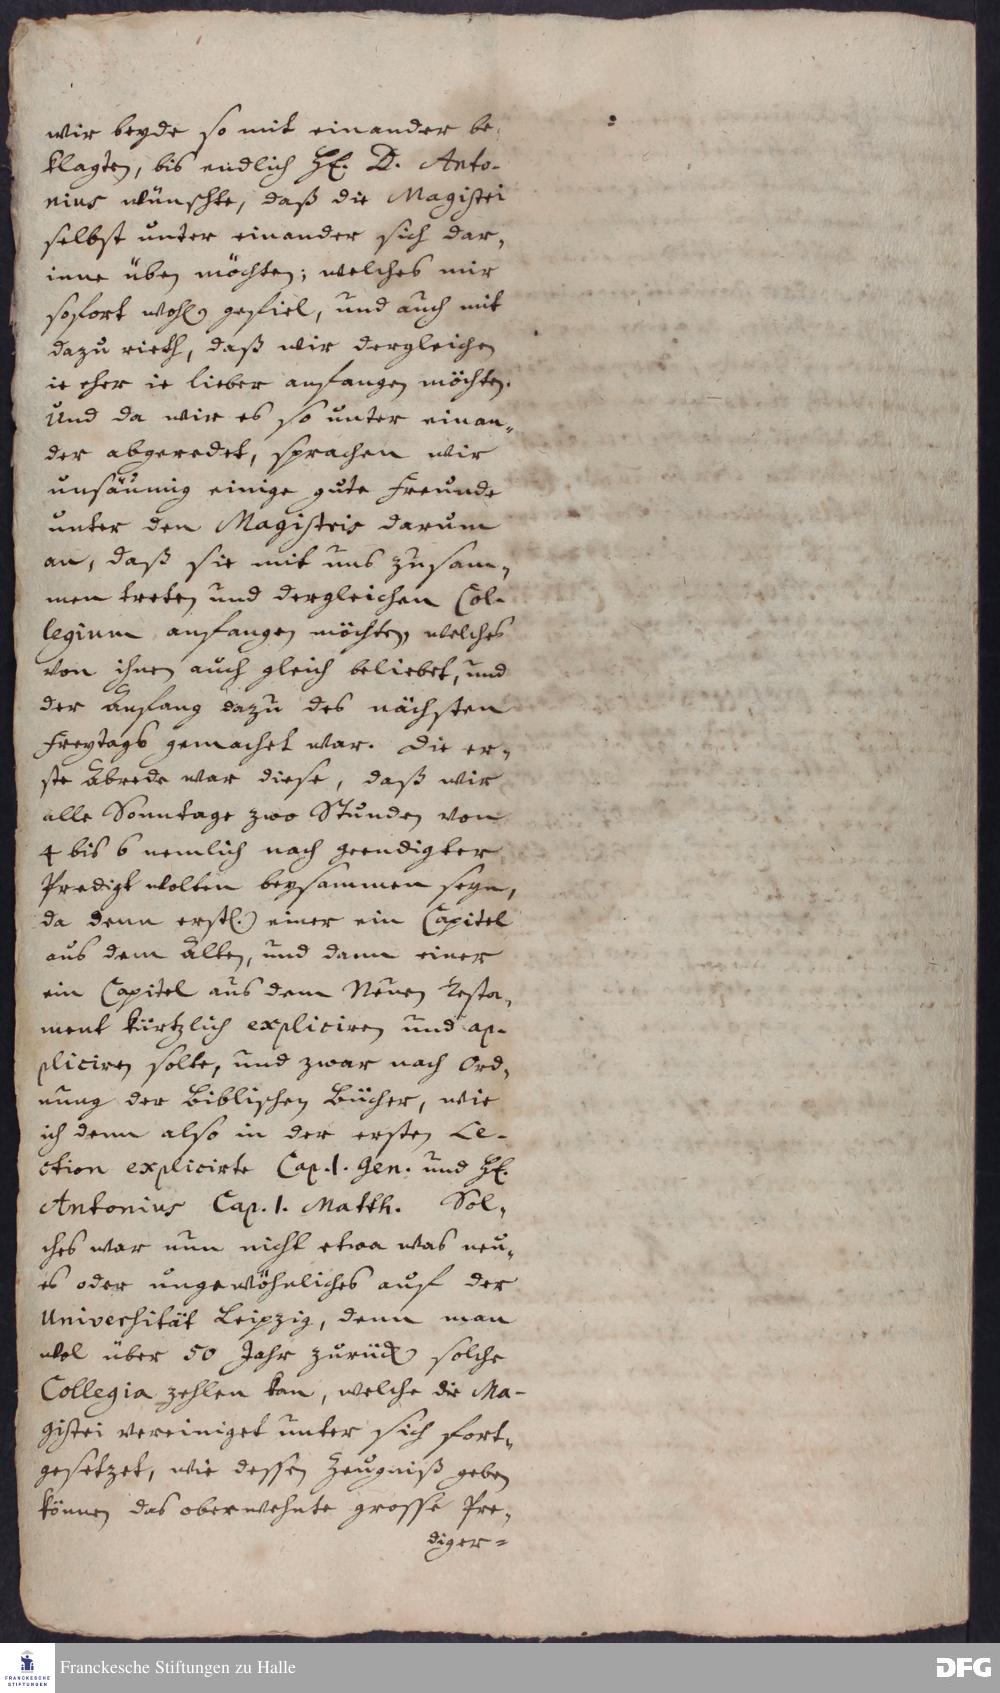 wir beyde so mit einander be-
klagten, bis endlich H. D. Anto-
nius wünschte, daß die Magistri
selbst unter einander sich dar,
inne üben möchten; welches mir
sofort wohl gefiel, und auch mit
dazu rieth, daß wir dergleichen
ie eher ie lieber anfangen möchten.
Und da wir es so unter einan,
der abgeredet, sprachen wir
unsäumig einige gute Freunde
unter den Magistris darum
an, daß sie mit uns zusam,
men treten und dergleichen Col-
legium anfangen möchten, welches
von ihnen auch gleich beliebet, und
der Anfang dazu des nächsten
Freytags gemachet war. Die er,
ste Abrede war diese, daß wir
alle Sonntage zwo Stunden von
4 bis 6 nemlich nach geendigter
Predigt wolten beysammen seyn,
da denn erstl. einer ein Capitel
aus dem Alten, und dann einer
ein Capitel aus dem Neuen Testa,
ment kürtzlich expliciren und ap-
pliciren solte, und zwar nach Ord,
nung der Biblischen Bücher, wie
ich denn also in der ersten Le-
ction explicirte Cap. 1. Gen. und H.
Antonius Cap. 1. Matth. Sol,
ches war nun nicht etwa was neu,
es oder ungewöhnliches auf der
Universität Leipzig, denn man
wol über 50 Jahr zurück solche
Collegia zehlen kan, welche die Ma-
gistri vereiniget unter sich fort,
gesetzet, wie dessen Zeugniß geben
können das oberwehnte grosse Pre,
diger=
Franckesche Stiftungen zu Halle
FRANCKESCHE STIFTUNGEN
DFG